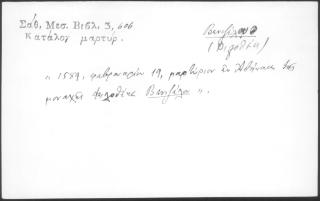 Σάθ, Μεσ. Βιβλ. 3, 606
Κατάλογ μαρτυρ.
Βενιζέλου
(Φιλοθέη)
" 1589, φεβρουαρίου 19, μαρτύριον ἐν Ἀθήναις τῆς
μοναχῆς Φιλοθέης Βενιζέλου ".